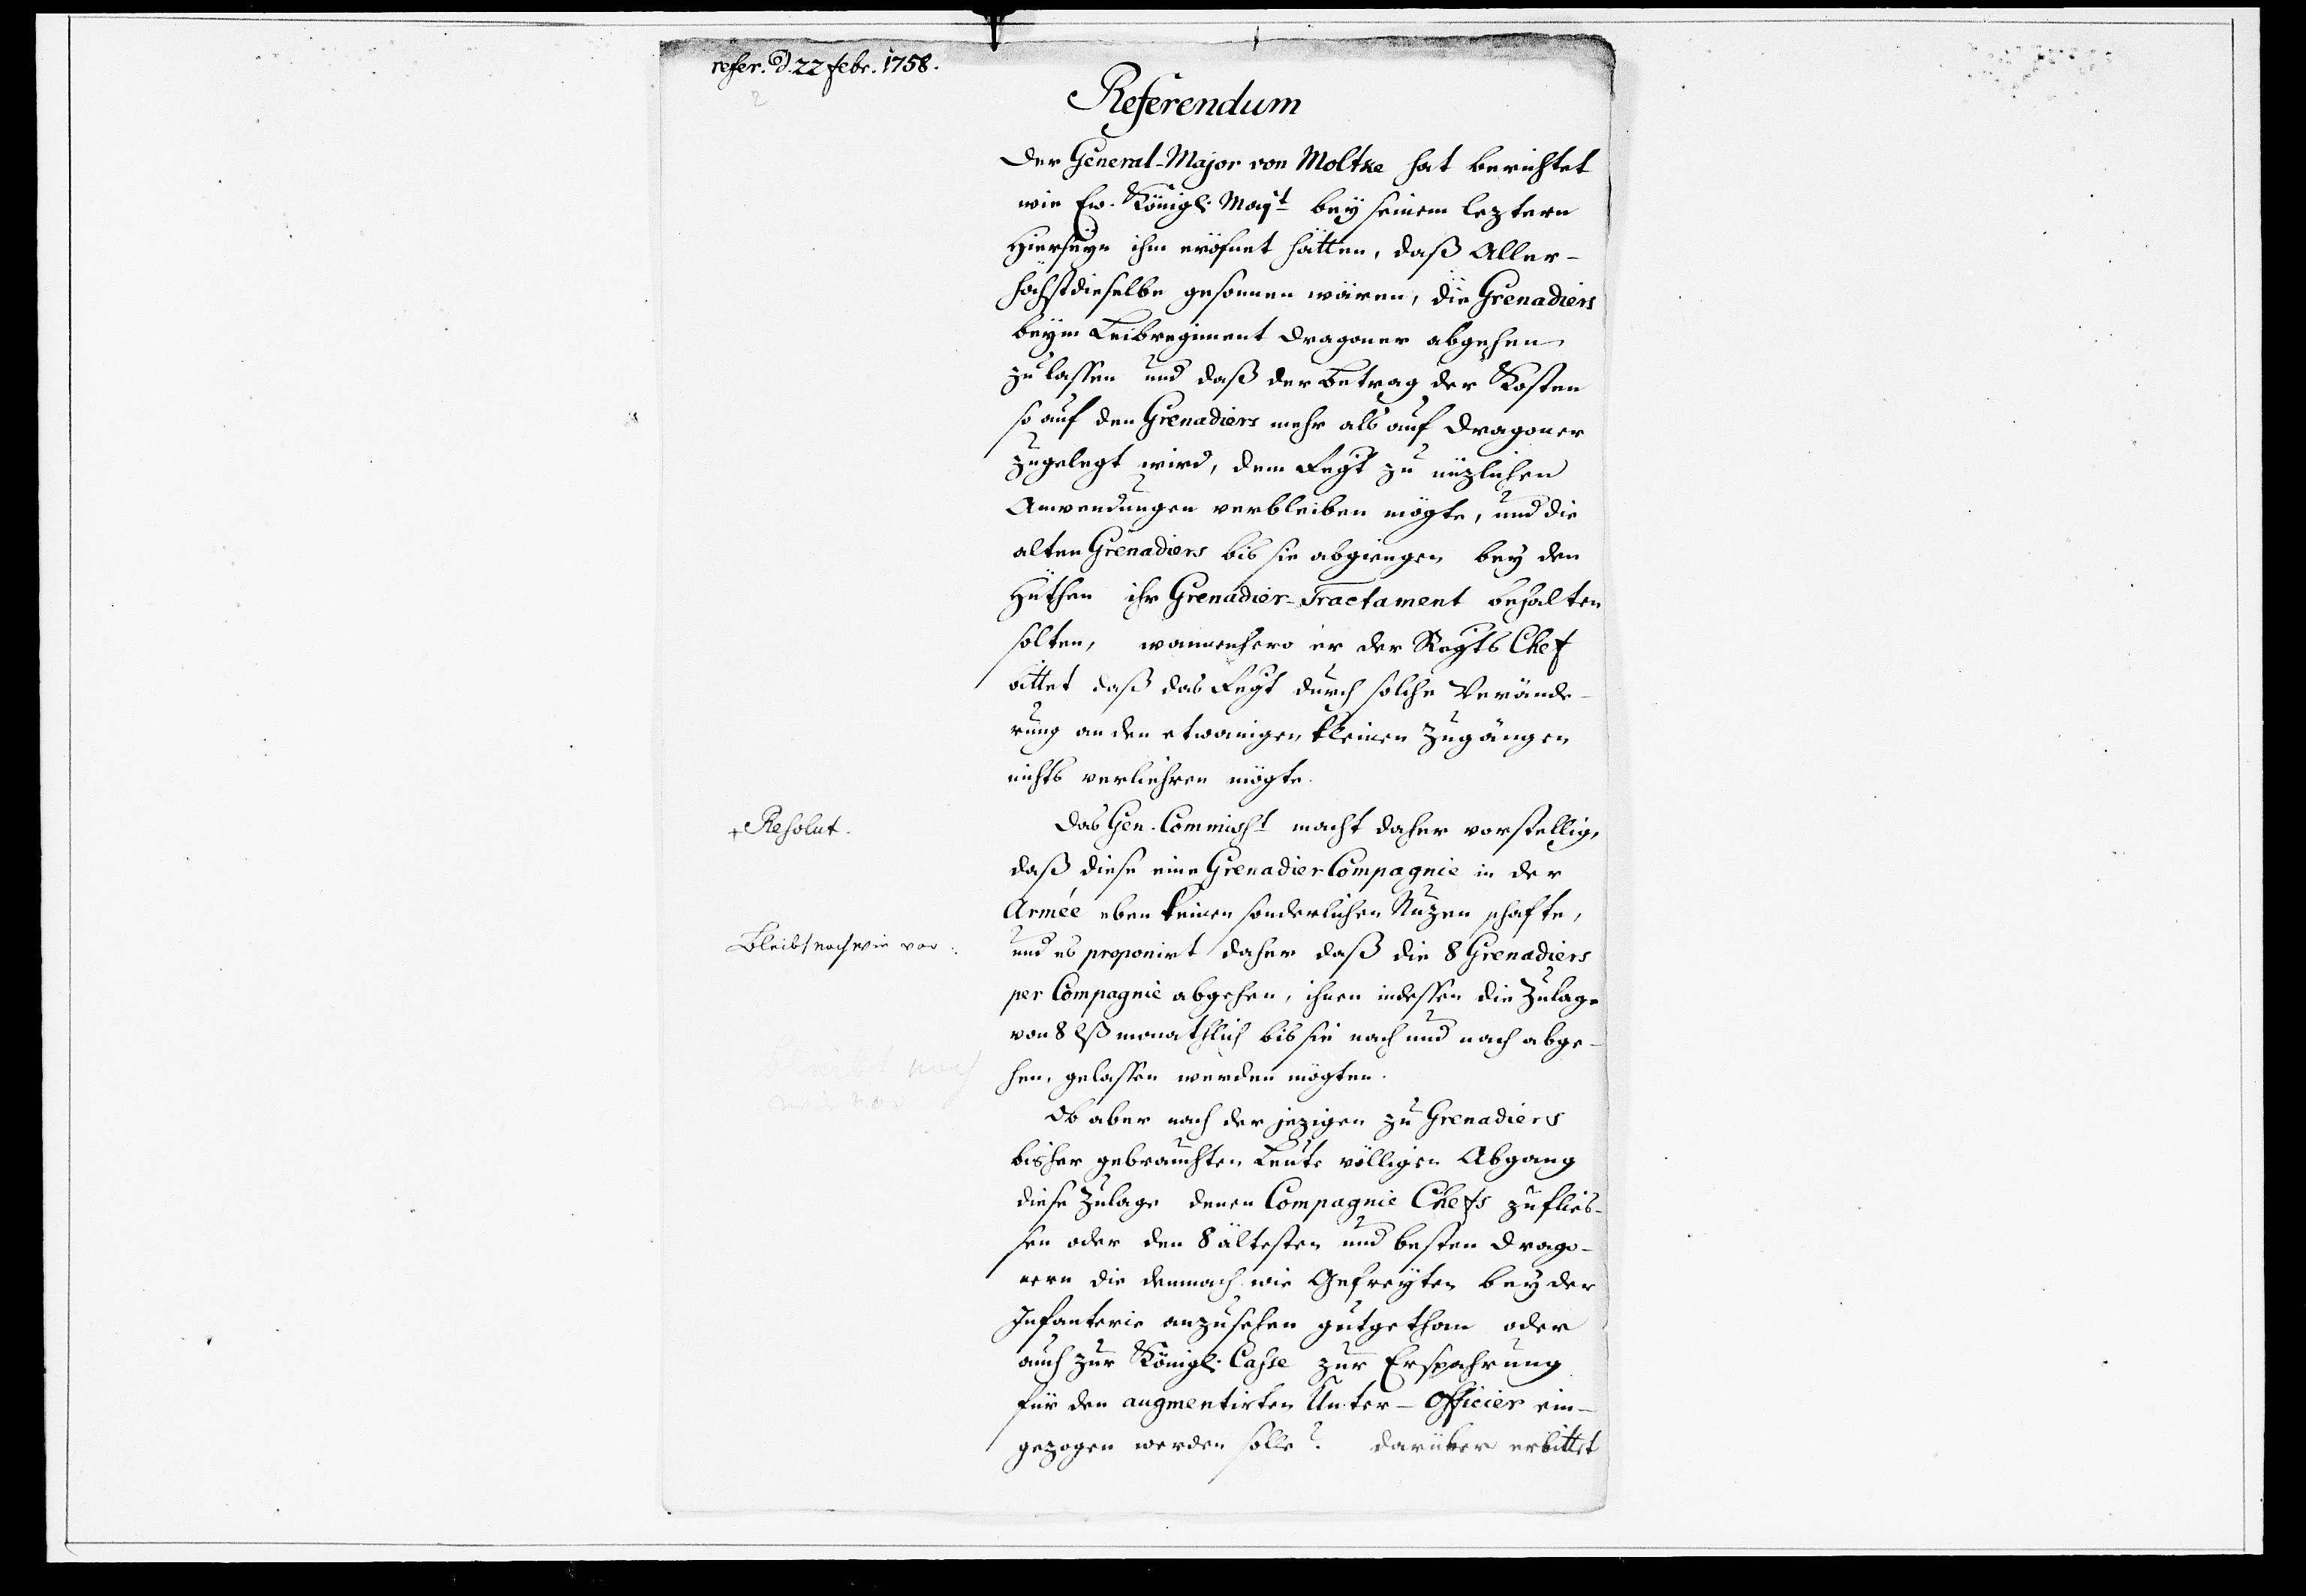 refer. d. 22 febr. 1758.
2
Referendum
Der General-Major von Moltke hat berichtet
wie Ew. Königl. Mayt bey seinem leztern
Hierseyn ihm eröfnet hätten, daß Aller-
höchstdieselbe gesonnen wären, die Grenadiers
beym Leibregiment Dragoner abgehen
zu lassen und daß der Betrag der Kosten
so auf den Grenadiers mehr als auf Dragoner
zugelegt wird, dem Regt zu nüzlichen
Anwendungen verbleiben mögte, und die
alten Grenadiers bis sie abgiengen bey den
Hüthen ihr Grenadier-Tractament behalten
solten, wannenhero er der Regts Chef
bittet daß das Regt durch solche Verände-
rung an den etwanigen kleinen Zugängen
nichts verliehren mögte.
+ Resolut.
Das Gen. Commisst macht daher vorstellig,
daß diese eine Grenadier Compagnie in der
Armée eben keinen sonderlichen Nuzen schafte,
Bleibt noch wie vor.
und es proponirt daher daß die 8 Grenadiers
per Compagnie abgehen, ihnen indessen die Zulage
von 8 lß monathlich bis sie nach und nach abge-
hen, gelassen werden mögten.
bleibt noch
wie vor
Ob aber nach der jezigen zu Grenadiers
bisher gebrauchten Leute völligen Abgang
diese Zulage denen Compagnie Chefs zuflies-
sen oder den 8 ältesten und besten Drago-
nern die demnach wie Gefreyten bey der
Infanterie anzusehen gutgethan oder
auch zur Königl. Casse zur Erspahrung
für den augmentirten Unter-Officier ein-
gezogen werden solle? Darüber erbittet